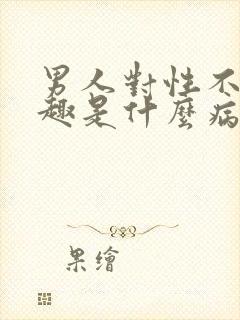 男人對性不
趣是什麼病
果繪